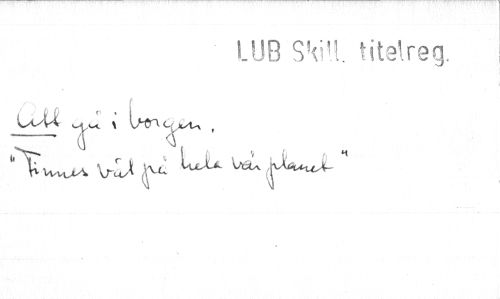 LUB Skill. titelreg.
Att gå i borgen.
"Finnes väl på hela vår planet"